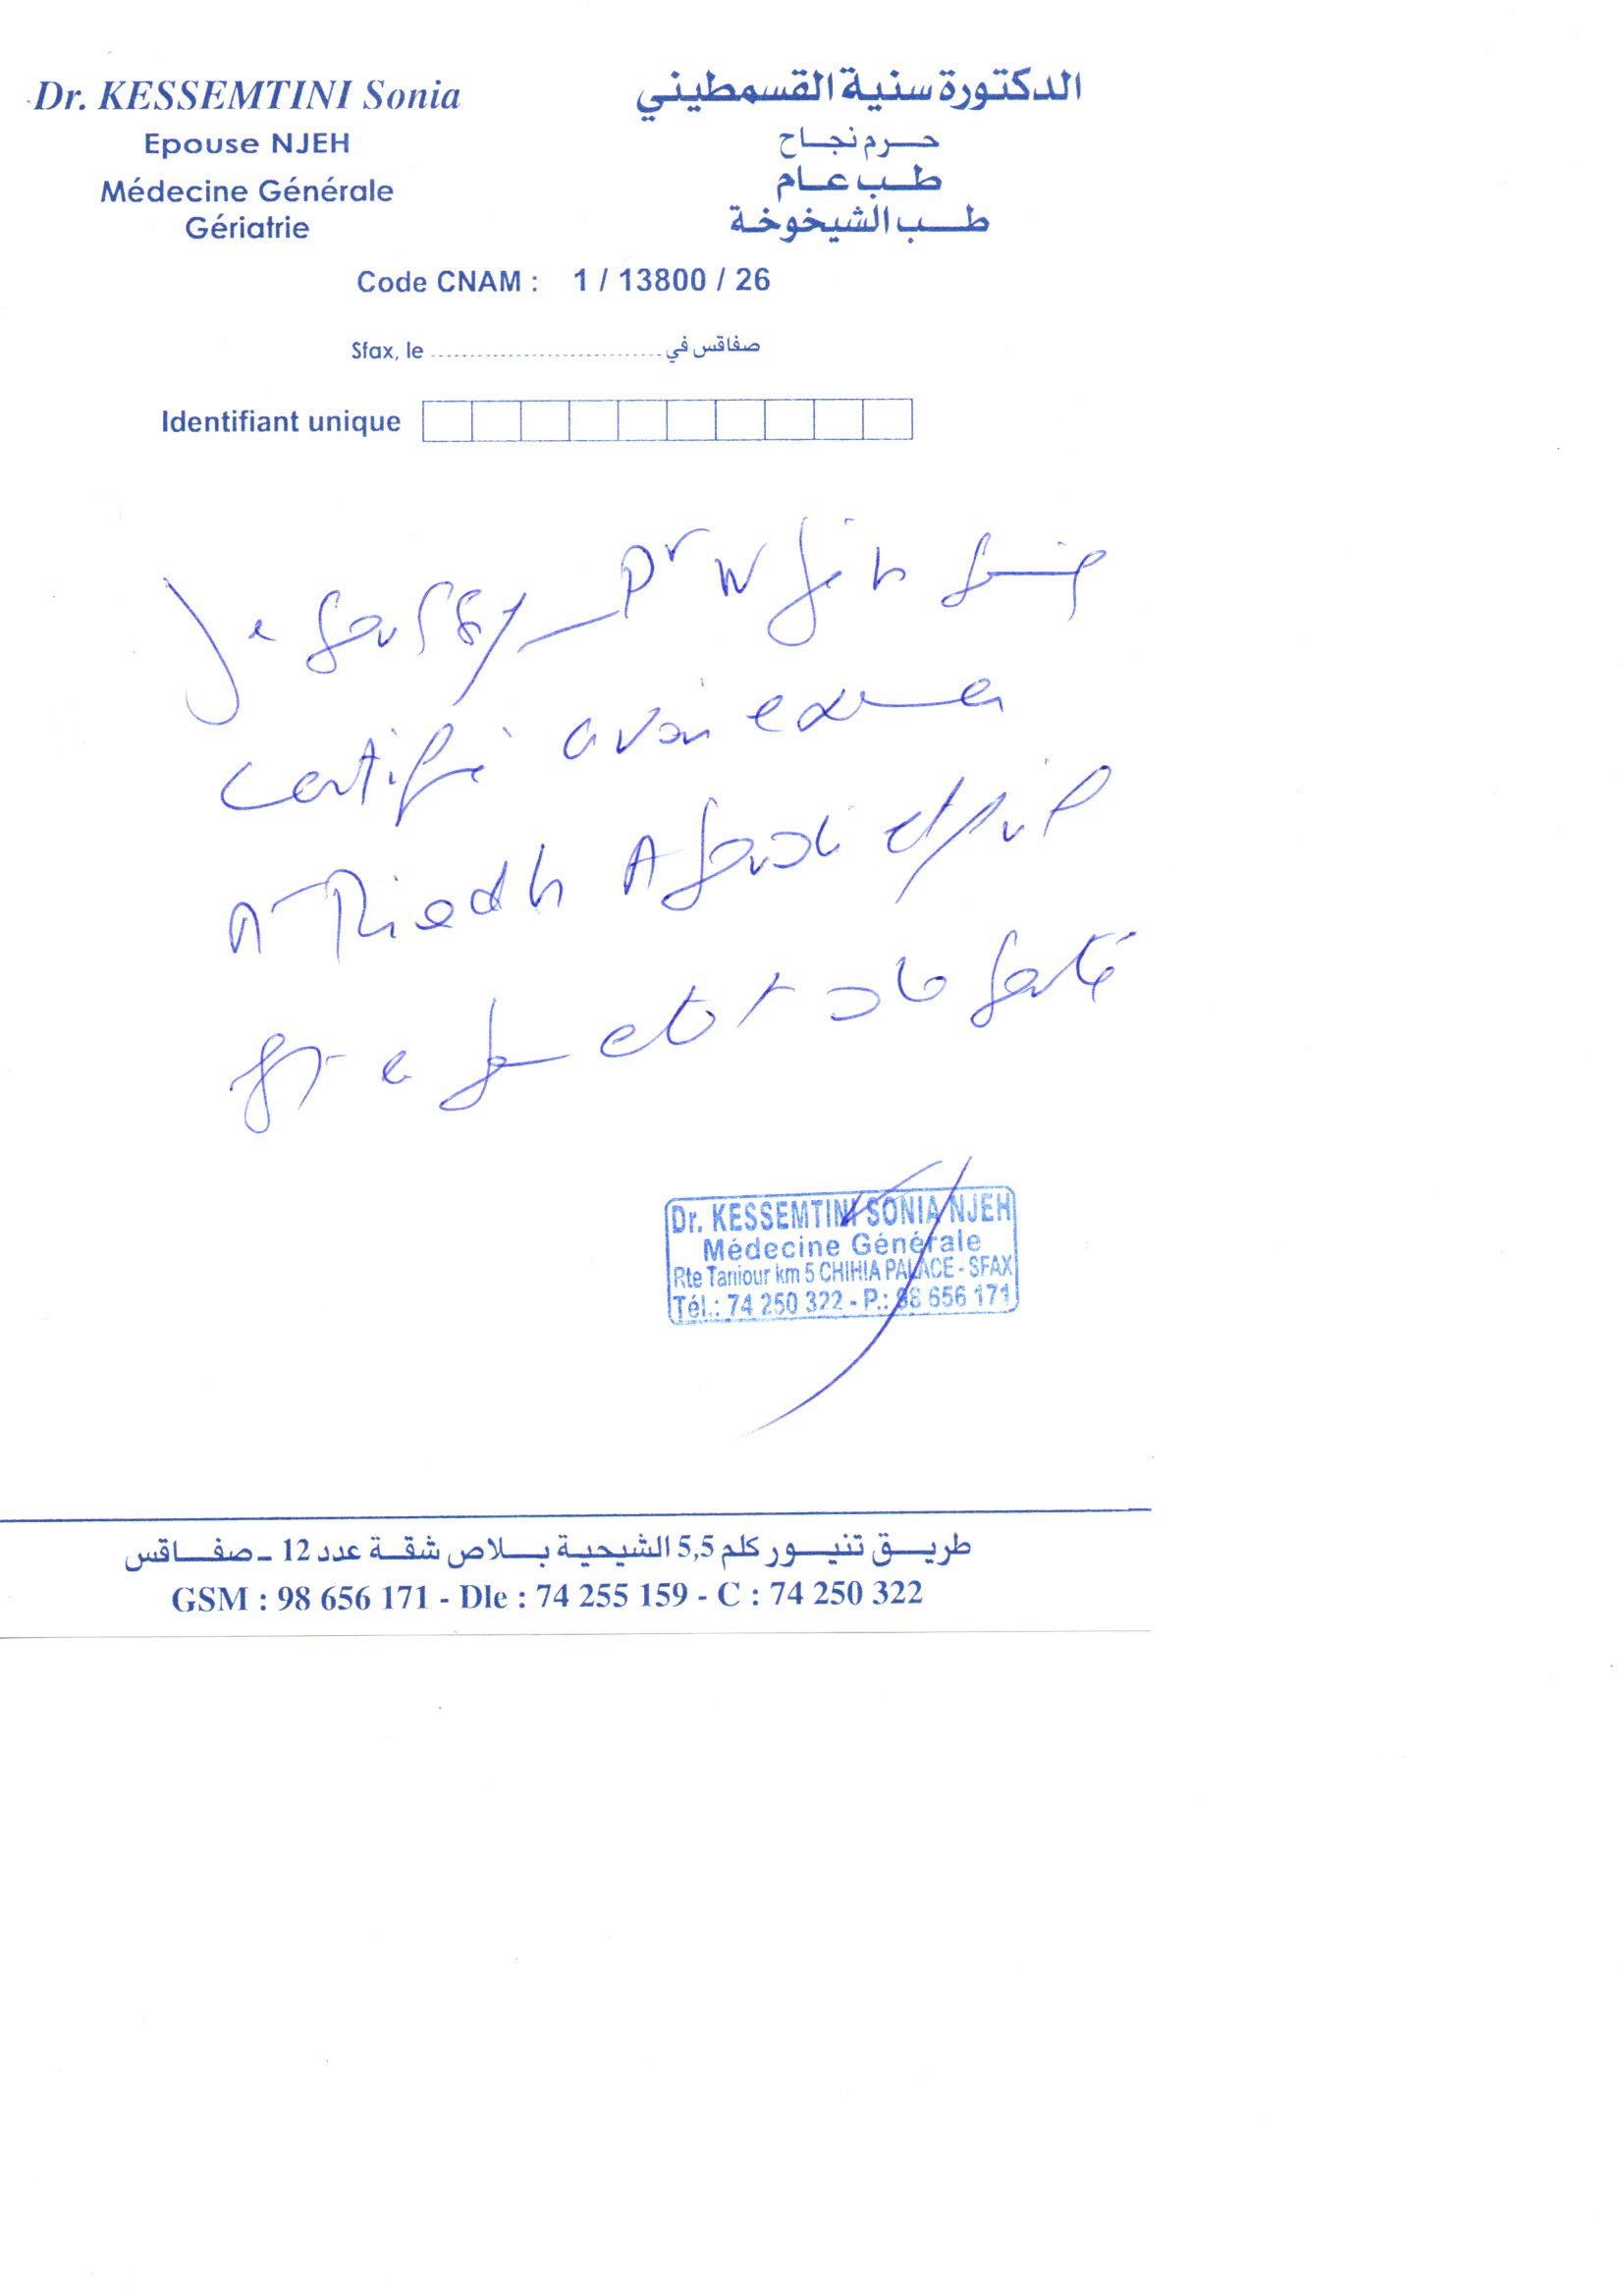 Dr. KESSEMTINI Sonia
Epouse NJEH
Médecine Générale
Gériatrie
الدكتورة سنية القسمطيني
حرم نجاح
طب عام
طب الشيخوخة
Code CNAM : 1 / 13800 / 26
Sfax, le ............................ صفاقس في
Identifiant unique
Je Dr Njeh
certifie avoir
Mr Riadh
état de santé
Dr. KESSEMTINI SONIA NJEH
Médecine Générale
Rte Taniour km 5 CHIHIA PALACE - SFAX
Tél.: 74 250 322 - P.: 98 656 171
طريق تنيور كلم 5,5 الشيحية بلاص شقة عدد 12 ـ صفاقس
GSM : 98 656 171 - Dle : 74 255 159 - C : 74 250 322